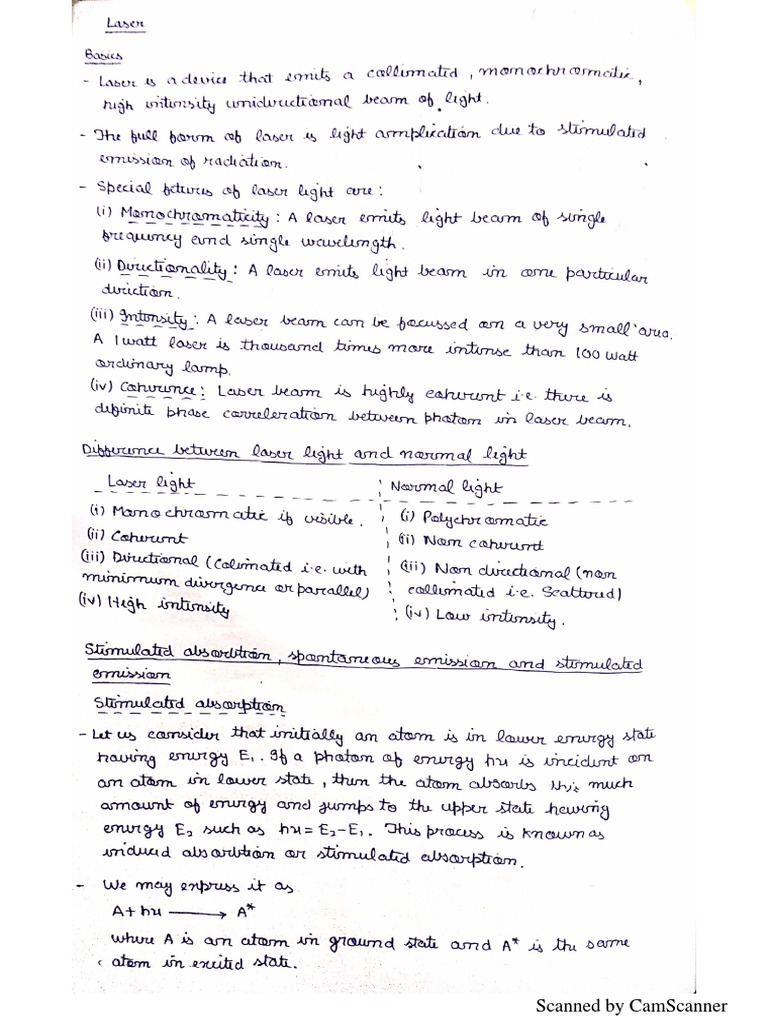 Laser
Basics
- Laser is a device that emits a collimated, monochromatic,
high intensity unidirectional beam of light.
- The full form of laser is light amplication due to stimulated
emission of radiation.
- Special fetures of laser light are:
(i) Monochromaticity: A laser emits light beam of single
frequency and single wavelength.
(ii) Directionality: A laser emits light beam in one particular
direction.
(iii) Intensity: A laser beam can be focussed on a very small area.
A 1 watt laser is thousand times more intense than 100 watt
ordinary lamp.
(iv) Coherence: Laser beam is highly coherent i.e. there is
definite phase correleration between photon in laser beam.
Difference between laser light and normal light
Laser light
(i) Monochromatic if visible.
(ii) Coherent
(iii) Directional (Colimated i.e. with
minimum divergence or parallel)
(iv) High intensity
Normal light
(i) Polychromatic
(ii) Non coherent
(iii) Non directional (non
collimated i.e. Scattored)
(iv) Low intensity.
Stimulated absorbtion, spontaneous emission and stimulated
emission
Stimulated absorption
- Let us consider that initially an atom is in lower energy state
having energy E₁. If a photon of energy hν is incident on
an atom in lower state, then the atom absorbs this much
amount of energy and jumps to the upper state heving
energy E₂ such as hν = E₂-E₁. This process is known as
induced absorbtion or stimulated absorption.
- We may express it as
A + hν ⟶ A*
where A is an atom in ground state and A* is the same
atom in excited state.
Scanned by CamScanner